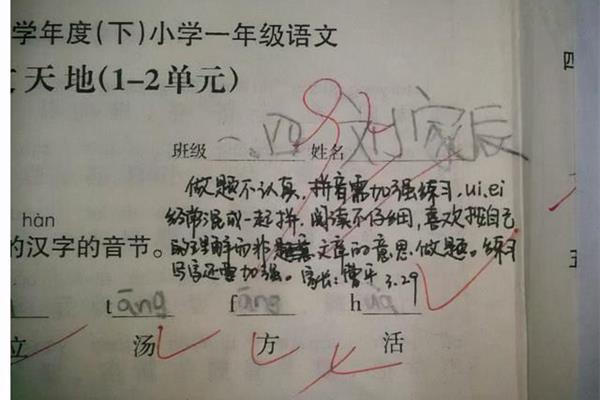 学年度(下)小学一年级语文
天地(1-2单元)
四
班级 一.四 姓名 刘家辰
做题不认真,拼音需加强练习,ui.ei
经常混成一起拼.阅读不仔细,喜欢按自己
的理解而非题意文章的意思做题。练习
写字还要加强。家长:曹平 3.29
hàn
的汉字的音节。
五
tāng fāng h
立 汤 方 活